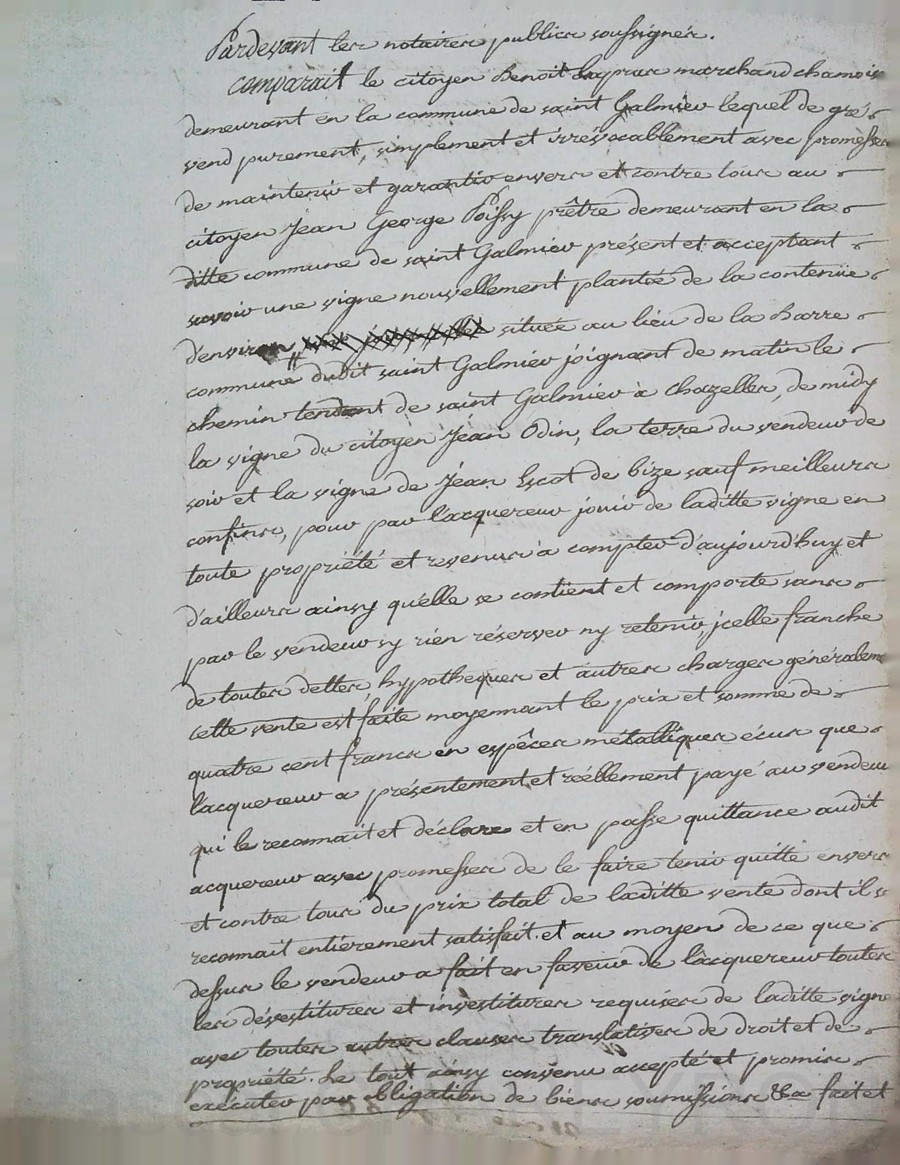 Pardevant les notaires publics soussignés.
comparait le citoyen Benoit Lapras marchand chamois
demeurant en la commune de saint Galmier lequel de gré
vend purement, simplement et irrévocablement avec promesses
de maintenir et garantir envers et contre tous au
citoyen Jean George Poissy prêtre demeurant en la
ditte commune de saint Galmier présent et acceptant
savoir une vigne nouvellement plantée de la contenüe
d'environ située au lieu de la Barre
commune dudit saint Galmier joignant de matin le
chemin tendant de saint Galmier à chazelles, de midy
la vigne du citoyen Jean Odin, la terre du vendeur de
soir et la vigne de Jean Escot de bize sauf meilleurs
confins, pour par l'acquereur jouir de laditte vigne en
toute propriété et revenus a compter d'aujourd'huy et
d'ailleurs ainsy qu'elle se contient et comporte sans
par le vendeur sy rien réserver ny retenir jcelle franche
de toutes dettes, hypotheques et autres charges généraleme
cette vente est faite moyennant le prix et somme de
quatre cent francs en espêces métalliques écus que
l'acquereur a présentement et réellement payé au vendeur
qui le reconnait et déclare et en passe quittance audit
acquereur avec promesses de le faire tenir quitte envers
et contre tous du prix total de laditte vente dont il se
reconnait entiérement satisfait. et au moyen de ce que
dessus le vendeur a fait en faveur de l'acquereur toutes
les dévestitures et investitures requises de laditte vigne
avec toutes autres clauses translatives de droit et de
propriété. Le tout ainsy convenu accepté et promis
exécuter par obligation de biens soumissions &a fait et